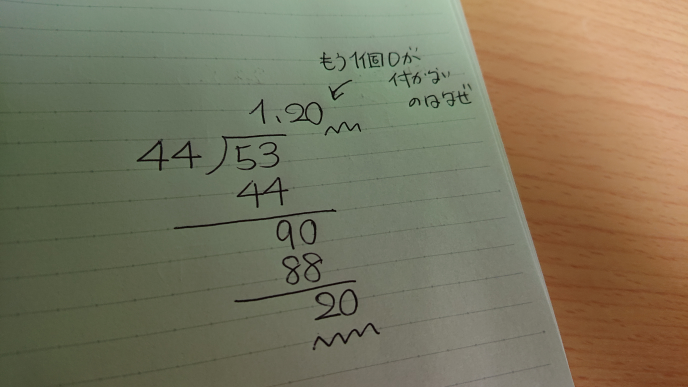 もう1個0が
付かない
のはなぜ
1.20
44)53
44
90
88
20